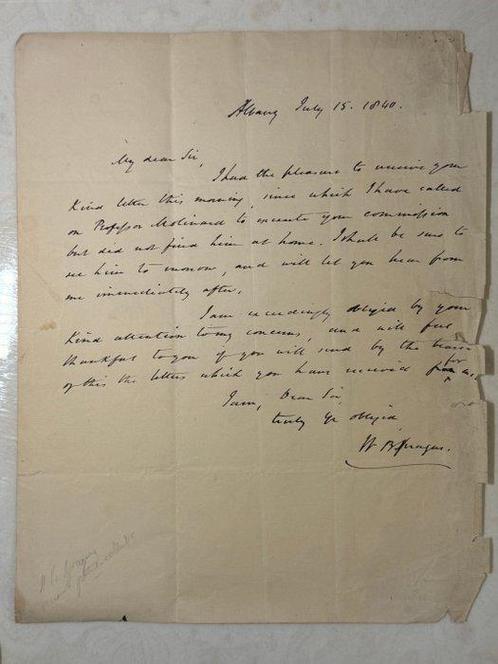 Albany July 15. 1840.
My dear Sir,
I had the pleasure to receive your
kind letter this morning, since which I have called
on Professor Molinard to execute your commission
but did not find him at home. I shall be sure to
see him to morrow, and will let you hear from
me immediately after.
I am exceedingly obliged by your
kind attention to my concerns, and will feel
thankful to you if you will send by the bearer
of this the letters which you have received for me,
I am, Dear Sir,
truly yr obliged
W B Sprague.
W B Sprague